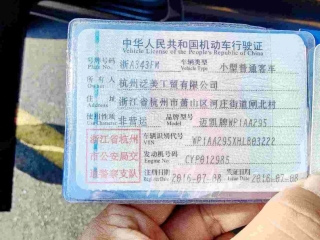 中华人民共和国机动车行驶证
Vehicle License of the People's Republic of China
号牌号码 Plate No. 浙A343FM 车辆类型 Vehicle Type 小型普通客车
所有人 杭州泛美工贸有限公司
住址 浙江省杭州市萧山区河庄街道闸北村
使用性质 非营运 品牌型号 迈凯牌WP1AA295
浙江省杭州市公安局交通警察支队
车辆识别代号 VIN WP1AA295XHLB03222
发动机号码 CYP012985
注册日期 2016-07-08 发证日期 2016-07-08